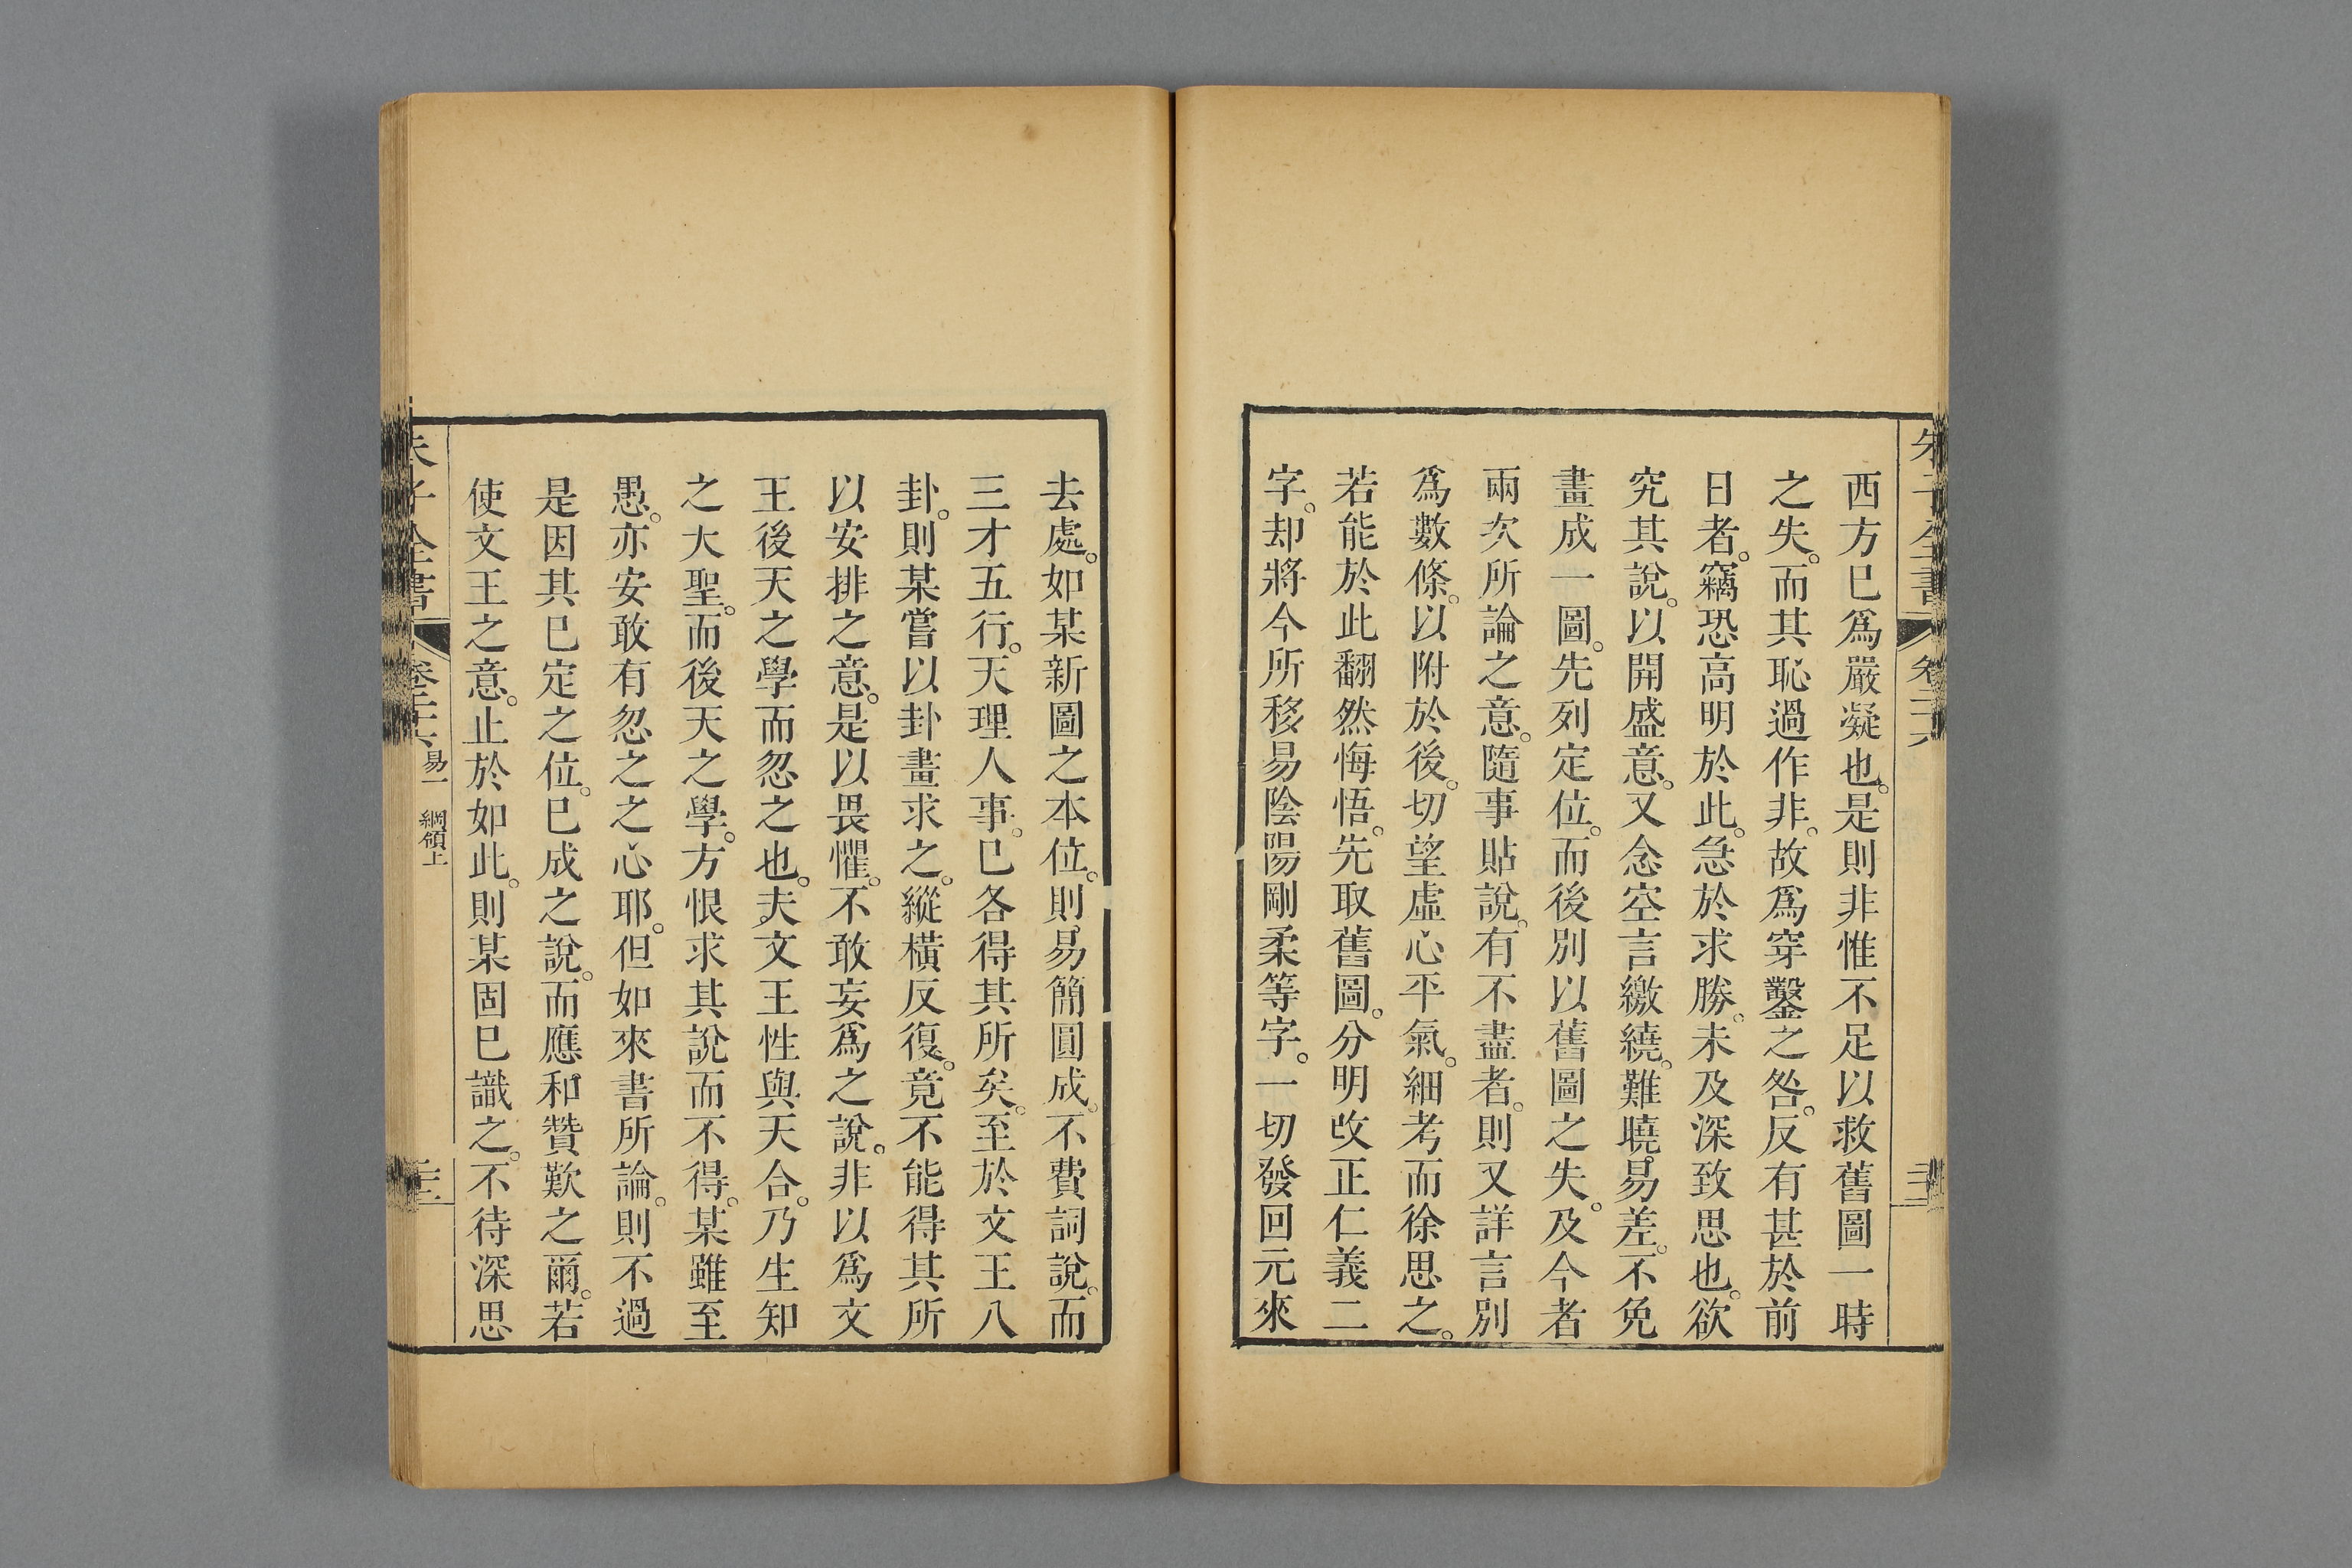 西方已爲嚴凝也。是則非惟不足以救舊圖一時
之失。而其恥過作非。故爲穿鑿之咎。反有甚於前
日者。竊恐高明於此。急於求勝。未及深致思也。欲
究其說。以開盛意。又念空言繳繞。難曉易差。不免
畫成一圖。先列定位。而後別以舊圖之失。及今者
兩次所論之意。隨事貼說。有不盡者。則又詳言別
爲數條。以附於後。切望虛心平氣。細考而徐思之。
若能於此翻然悔悟。先取舊圖。分明改正仁義二
字。却將今所移易陰陽剛柔等字。一切發回元來
去處。如某新圖之本位。則易簡圓成。不費詞說。而
三才五行。天理人事。已各得其所矣。至於文王八
卦。則某嘗以卦畫求之。縱橫反復。竟不能得其所
以安排之意。是以畏懼。不敢妄爲之說。非以爲文
王後天之學而忽之也。夫文王性與天合。乃生知
之大聖。而後天之學。方恨求其說而不得。某雖至
愚。亦安敢有忽之之心耶。但如來書所論。則不過
是因其已定之位。已成之說。而應和贊歎之爾。若
使文王之意。止於如此。則某固已識之。不待深思
朱子全書 卷二十六 易一 綱領上